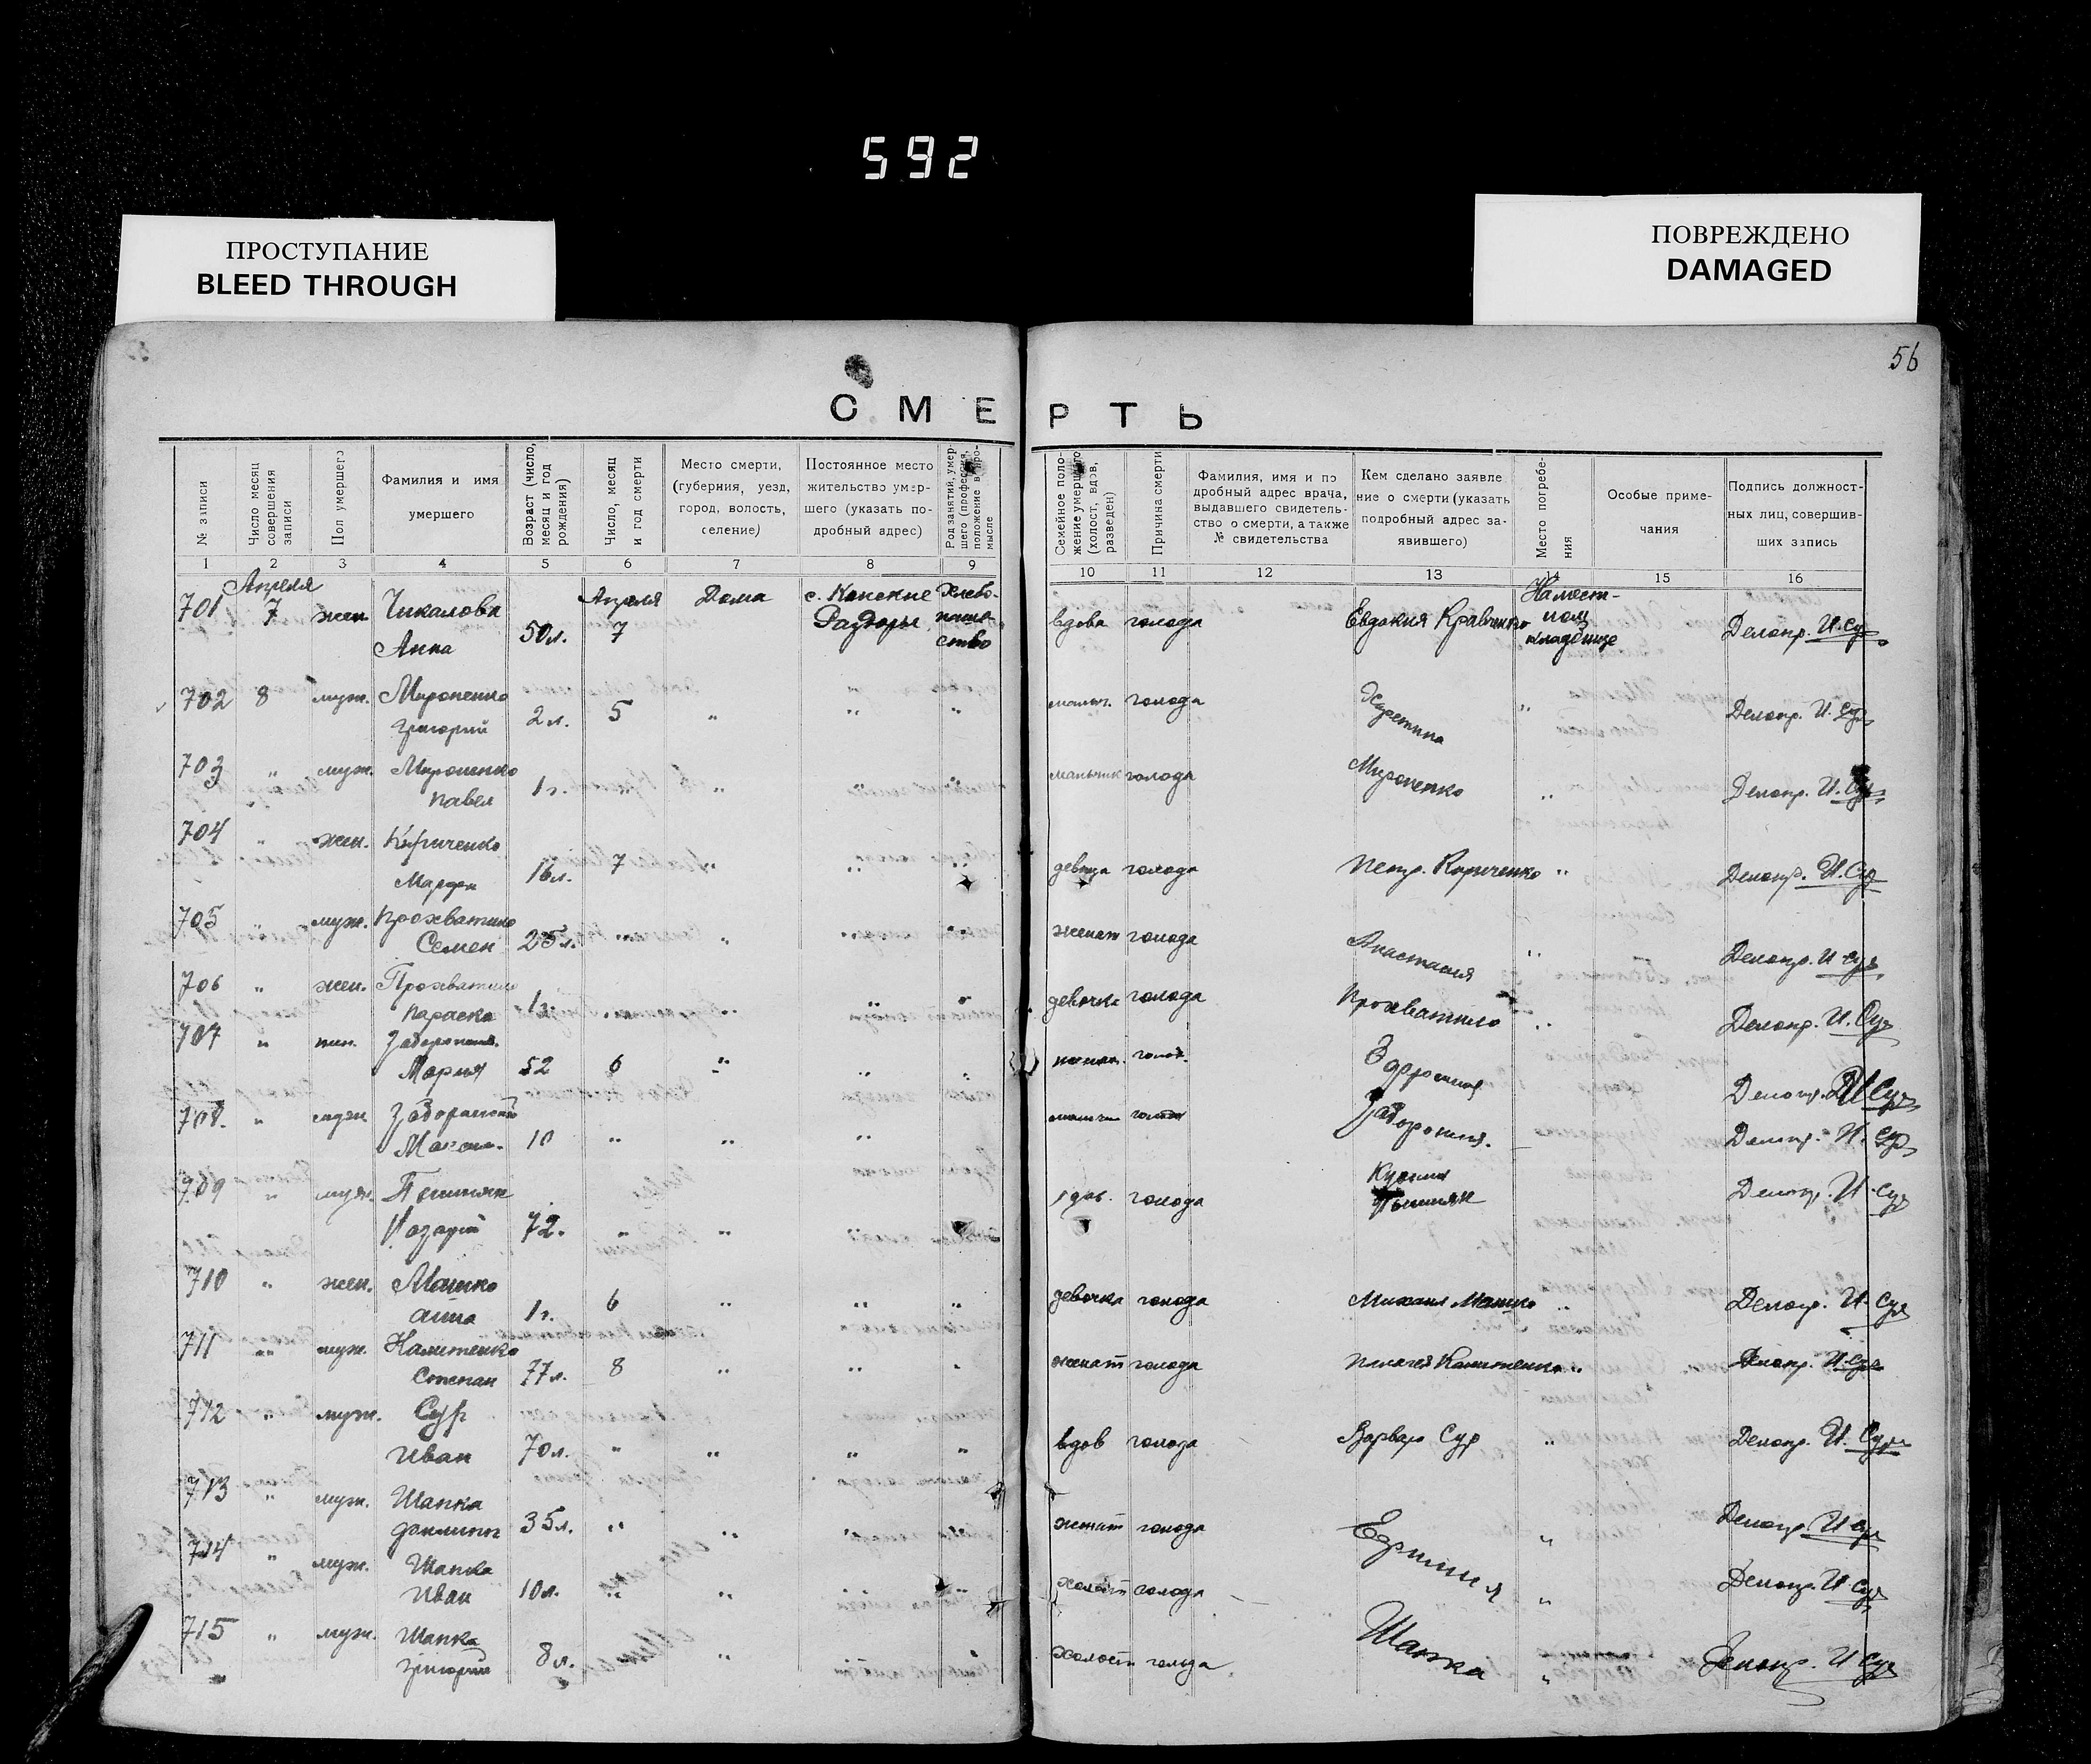 592
ПРОСТУПАНИЕ
BLEED THROUGH
ПОВРЕЖДЕНО
DAMAGED
56
СМЕРТЬ
№ записи
Число месяц совершения записи
Пол умершего
Фамилия и имя умершего
Возраст (число, месяц и год рождения)
Число, месяц и год смерти
Место смерти, (губерния, уезд, город, волость, селение)
Постоянное место жительство умершего (указать подробный адрес)
Род занятий, умершего (профессия, положение в промысле
Семейное положение умершего (холост, вдов, разведен)
Причина смерти
Фамилия, имя и подробный адрес врача, выдавшего свидетельство о смерти, а также № свидетельства
Кем сделано заявление о смерти (указать подробный адрес заявившего)
Место погребения
Особые примечания
Подпись должностных лиц, совершивших запись
1 2 3 4 5 6 7 8 9 10 11 12 13 14 15 16
701 Апреля 7 жен. Чикалова Анна 50 л. Апреля 7 Дома с. Конские Раздоры Хлебопашество вдова голода Евдокия Кравченко На местном кладбище Делопр. И. Сур
702 8 муж. Мироненко Григорий 2 л. 5 " " " мальч. голода " Делопр. И. Сур
703 " муж. Мироненко Павел 1 г. " " " " мальчик голода Мироненко " Делопр. И. Сур
704 " жен. Кириченко 16 л. 7 " " " девица голода Петр. Кириченко " Делопр. И. Сур
705 " муж. Прохватило Семен 25 л. " " " " женат голода Анастасия " Делопр. И. Сур
706 " жен. Прохватило Параска 1 г. " " " " девочка голода Прохватило " Делопр. И. Сур
707 " Мария 52 6 " " " Делопр. И. Сур
708. " муж. 10 " " " Делопр. И. Сур
709 " муж. 72. " " " голода Делопр. И. Сур
710 " жен. Машко Анна 1 г. 6 " " " девочка голода Михаил Машко " Делопр. И. Сур
711 " муж. Калитенко Степан 77 л. 8 " " " женат голода Калитенко " Делопр. И. Сур
712 " муж. Сур Иван 70 л. " " " " вдов голода Варвар Сур " Делопр. И. Сур
713 " муж. Шапка 35 л. " " " женат голода " Делопр. И. Сур
714 " муж. Шапка Иван 10 л. " " " " холост голода " Делопр. И. Сур
715 " муж. Шапка Григорий 8 л. " " холост голода Шапка " Делопр. И. Сур